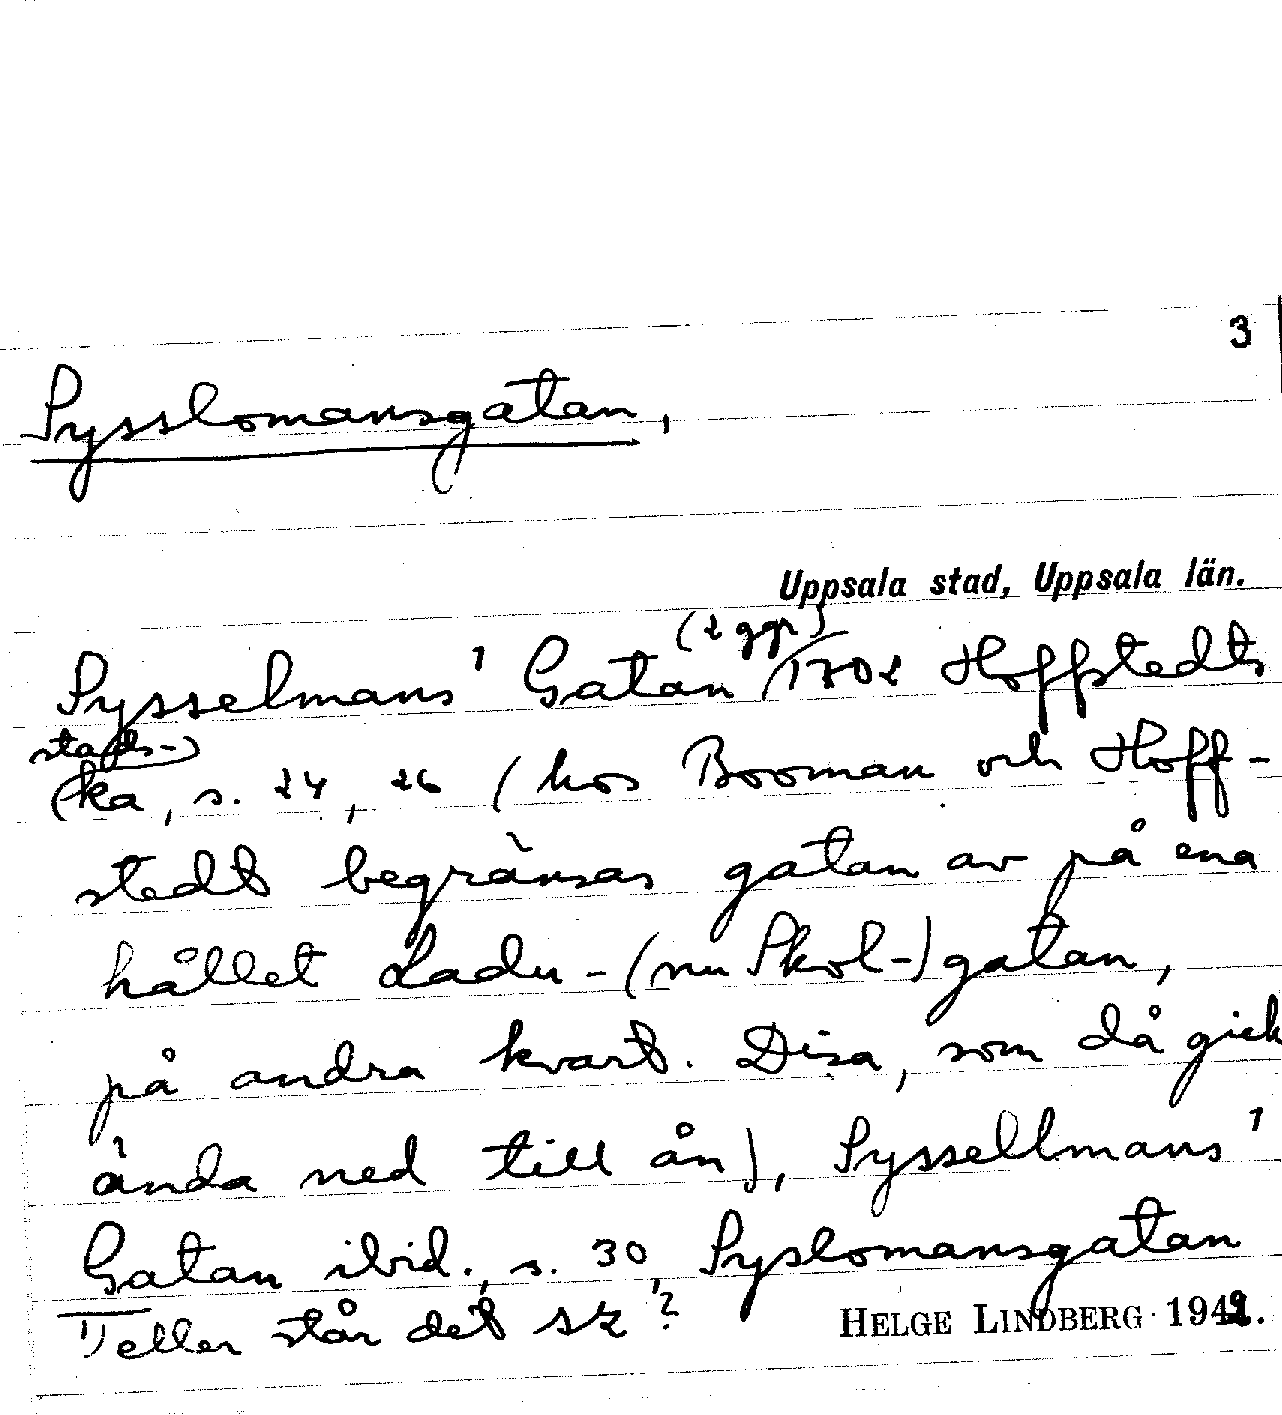 3
Sysslomansgatan,
Uppsala stad, Uppsala län.
(2 ggr)
Sysselmans¹ Gatan 1702 Hoffstedts
stads-)
(ka, s. 24, 26 (hos Booman och Hoff-
stedt begränsas gatan av på ena
hållet Ladu-(nu Skol-)gatan,
på andra kvart. Disa, som då gick
ända ned till ån), Syssellmans¹
Gatan ibid., s. 30, Syslomansgatan
1) eller står det sz?
HELGE LINDBERG 194